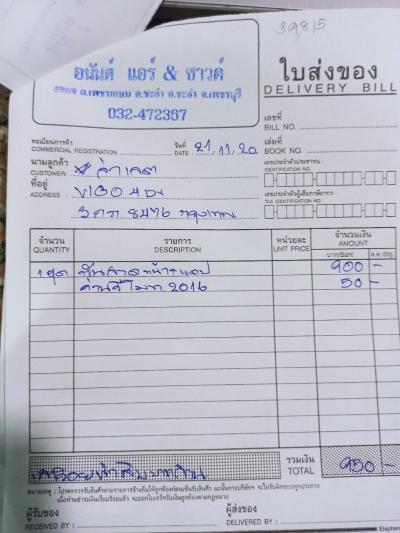 39815
อนันต์ แอร์ & ซาวด์
599/9 ถ.เพชรเกษม ต.ชะอำ อ.ชะอำ จ.เพชรบุรี
032-472367
ใบส่งของ
DELIVERY BILL
เลขที่
BILL NO.
ทะเบียนการค้า
COMMERCIAL REGISTRATION
วันที่
DATE 21.11.20
เล่มที่
BOOK NO.
นามลูกค้า
CUSTOMER:
เลขประจำตัวประชาชน
IDENTIFICATION NO
ที่อยู่
ADDRESS : VIGO 4D
เลขประจำตัวผู้เสียภาษีอากร
TAX IDENTIFICATION NO
3 8476 กรุงเทพ
จำนวน รายการ หน่วยละ จำนวนเงิน
QUANTITY DESCRIPTION UNIT PRICE AMOUNT
บาท/Baht ส.ต./Stg.
1 ชุด 900 -
ค่า 2016 50 -
รวมเงิน
TOTAL 950 -
หมายเหตุ : โปรดตรวจรับสินค้าตามรายการข้างต้นให้ถูกต้องก่อนเซ็นรับสินค้า
ผู้รับของ ผู้ส่งของ
RECEIVED BY : DELIVERED BY :